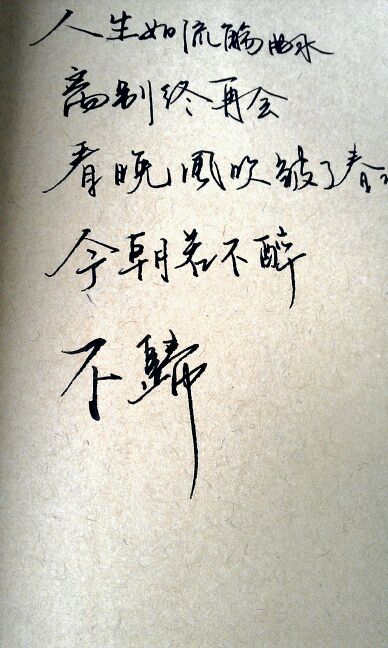 人生如流觞曲水
离别终再会
看晚風吹皱了春
今朝若不醉
不歸